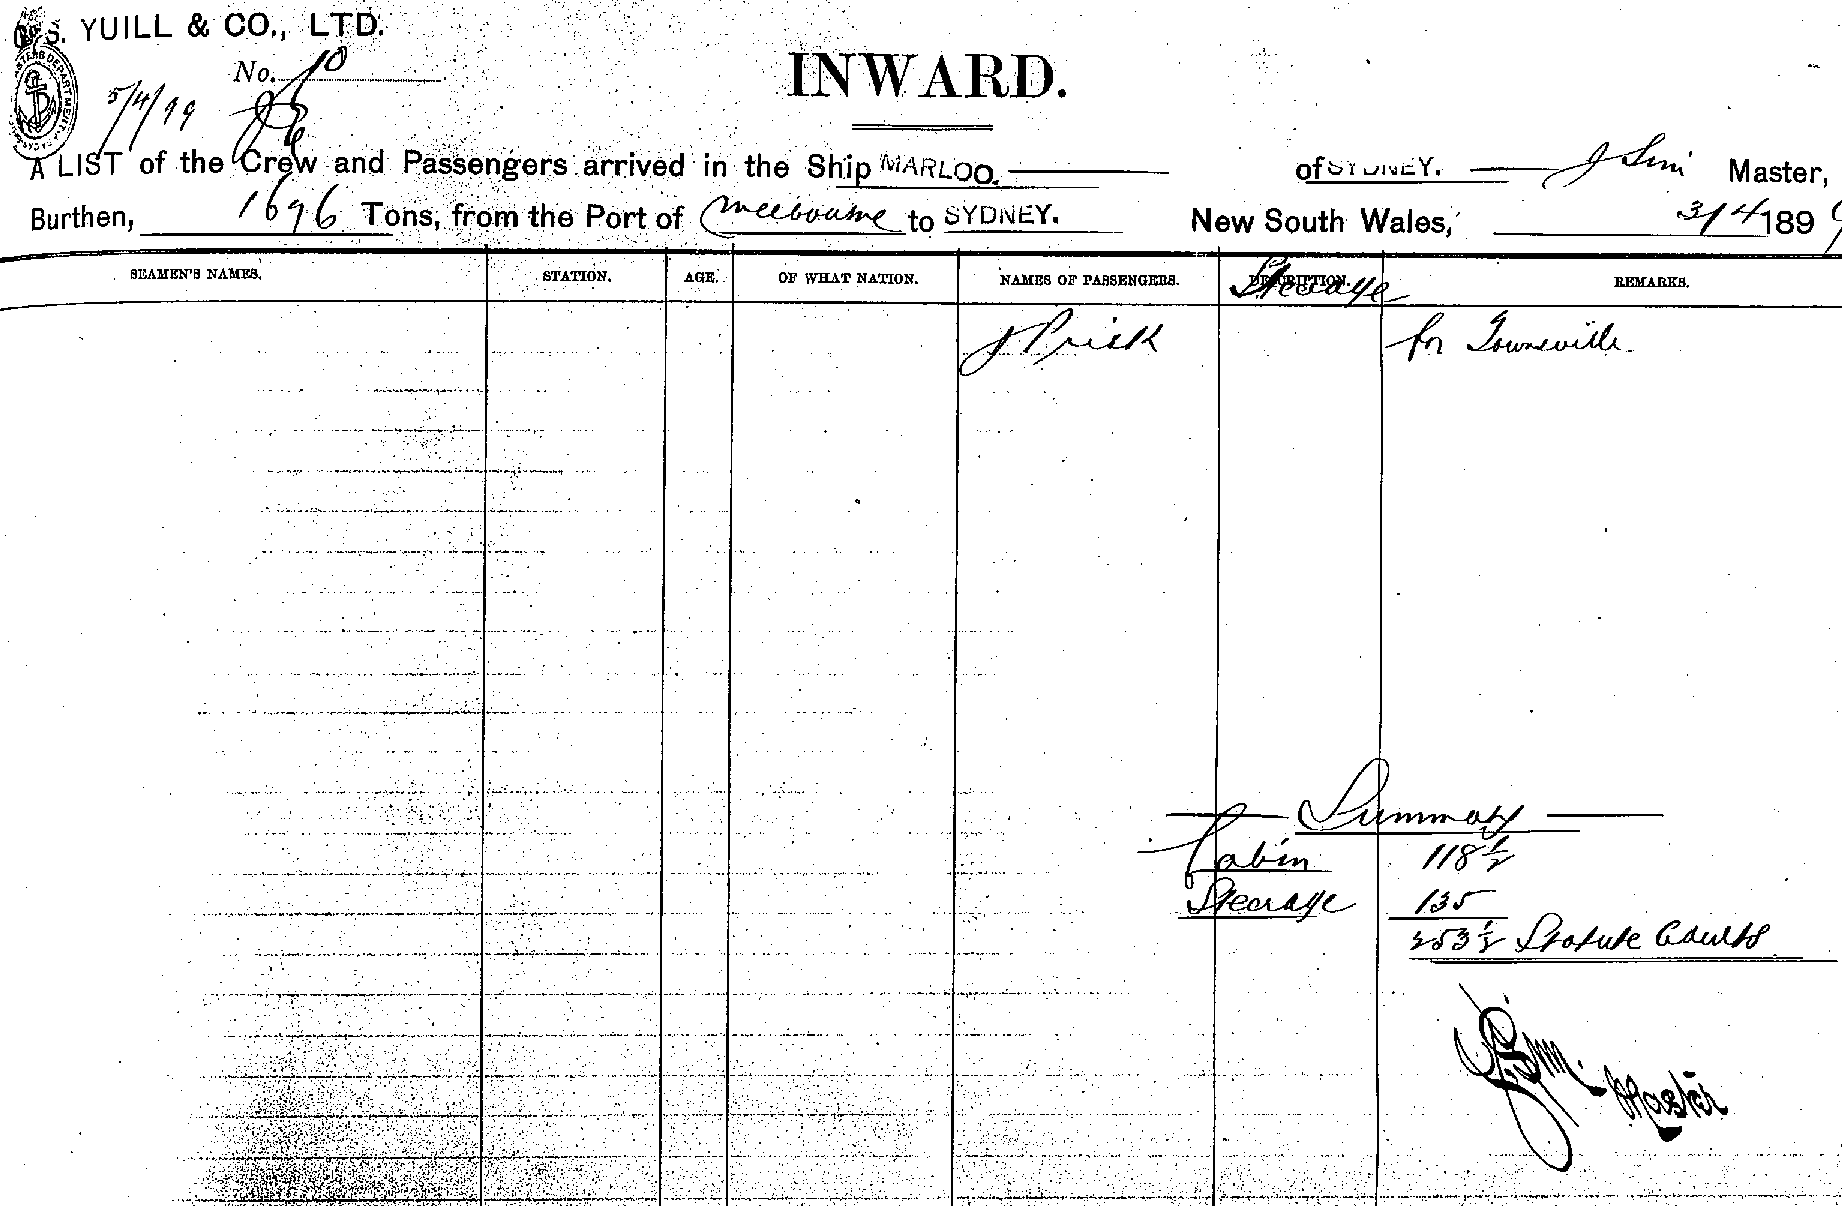 G. S. YUILL & CO., LTD.
No. 10
INWARD.
5/4/99
A LIST of the Crew and Passengers arrived in the Ship MARLOO. of SYDNEY. J Sim Master,
Burthen, 1696 Tons, from the Port of Melbourne to SYDNEY. New South Wales, 3/4 1899
SEAMEN'S NAMES. STATION. AGE. OF WHAT NATION. NAMES OF PASSENGERS. DESCRIPTION. REMARKS.
Steerage
J Prisk for Townsville
Summary
Cabin 118 1/2
Steerage 135
253 1/2 Statute Adults
J. Sim. Master